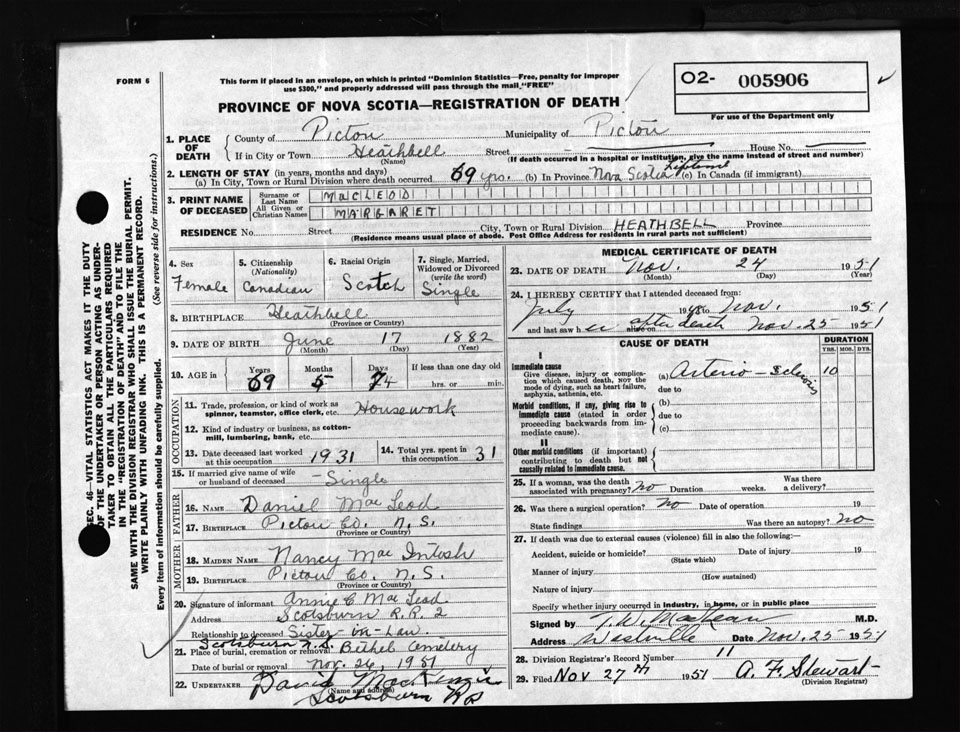 FORM 6
This form if placed in an envelope, on which is printed "Dominion Statistics—Free, penalty for improper
use $300," and properly addressed will pass through the mail "FREE"
PROVINCE OF NOVA SCOTIA—REGISTRATION OF DEATH
O2- 005906
For use of the Department only
SEC. 46—VITAL STATISTICS ACT MAKES IT THE DUTY
OF THE UNDERTAKER OR PERSON ACTING AS UNDER-
TAKER TO OBTAIN ALL THE PARTICULARS REQUIRED
IN THE "REGISTRATION OF DEATH" AND TO FILE THE
SAME WITH THE DIVISION REGISTRAR WHO SHALL ISSUE THE BURIAL PERMIT.
WRITE PLAINLY WITH UNFADING INK. THIS IS A PERMANENT RECORD.
Every item of information should be carefully supplied. (See reverse side for instructions.)
1. PLACE OF DEATH County of Pictou Municipality of Pictou
If in City or Town Heathbell Street — House No. —
(Name) (If death occurred in a hospital or institution, give the name instead of street and number)
2. LENGTH OF STAY (in years, months and days)
(a) In City, Town or Rural Division where death occurred 69 yrs. (b) In Province Nova Scotia Lifetime (c) In Canada (if immigrant)
3. PRINT NAME OF DECEASED Surname or Last Name MACLEOD
All Given or Christian Names MARGARET
RESIDENCE No. Street City, Town or Rural Division HEATHBELL Province
(Residence means usual place of abode. Post Office Address for residents in rural parts not sufficient)
4. Sex Female
5. Citizenship (Nationality) Canadian
6. Racial Origin Scotch
7. Single, Married, Widowed or Divorced (write the word) Single
8. BIRTHPLACE Heathbell
(Province or Country)
9. DATE OF BIRTH June 17 1882
(Month) (Day) (Year)
10. AGE in Years 69 Months 5 Days 7 If less than one day old
hrs. or min.
OCCUPATION
11. Trade, profession, or kind of work as spinner, teamster, office clerk, etc. Housework
12. Kind of industry or business, as cotton-mill, lumbering, bank, etc.
13. Date deceased last worked at this occupation 1931 14. Total yrs. spent in this occupation 31
15. If married give name of wife or husband of deceased Single
FATHER
16. NAME Daniel MacLeod
17. BIRTHPLACE Pictou Co. N.S.
(Province or Country)
MOTHER
18. MAIDEN NAME Nancy MacIntosh
19. BIRTHPLACE Pictou Co. N.S.
(Province or Country)
20. Signature of informant Annie C MacLeod
Address Scotsburn R.R. 2
Relationship to deceased Sister-in-Law.
21. Place of burial, cremation or removal Scotsburn N.S. Bethel Cemetery
Date of burial or removal Nov. 26, 1951
22. UNDERTAKER David MacKenzie
(Name and address)
Scotsburn NS
MEDICAL CERTIFICATE OF DEATH
23. DATE OF DEATH Nov. 24 1951
(Month) (Day) (Year)
24. I HEREBY CERTIFY that I attended deceased from:
July to Nov. 1951
and last saw her alive on after death Nov. 25 1951
CAUSE OF DEATH DURATION
YRS. MOS. DYS.
I
Immediate cause
Give disease, injury or complication which caused death, NOT the mode of dying, such as heart failure, asphyxia, asthenia, etc.
(a) Arterio-Sclerosis 10
due to
Morbid conditions, if any, giving rise to immediate cause (stated in order proceeding backwards from immediate cause).
(b)
due to
(c)
II
Other morbid conditions (if important) contributing to death but not causally related to immediate cause.
25. If a woman, was the death associated with pregnancy? no Duration weeks. Was there a delivery?
26. Was there a surgical operation? no Date of operation 19
State findings Was there an autopsy? no
27. If death was due to external causes (violence) fill in also the following:—
Accident, suicide or homicide? Date of injury 19
(State which)
Manner of injury
(How sustained)
Nature of injury
Specify whether injury occurred in industry, in home, or in public place
Signed by M.D.
Address Westville Date Nov. 25 1951
28. Division Registrar's Record Number 11
29. Filed Nov 27th 1951 A. F. Stewart
(Division Registrar)